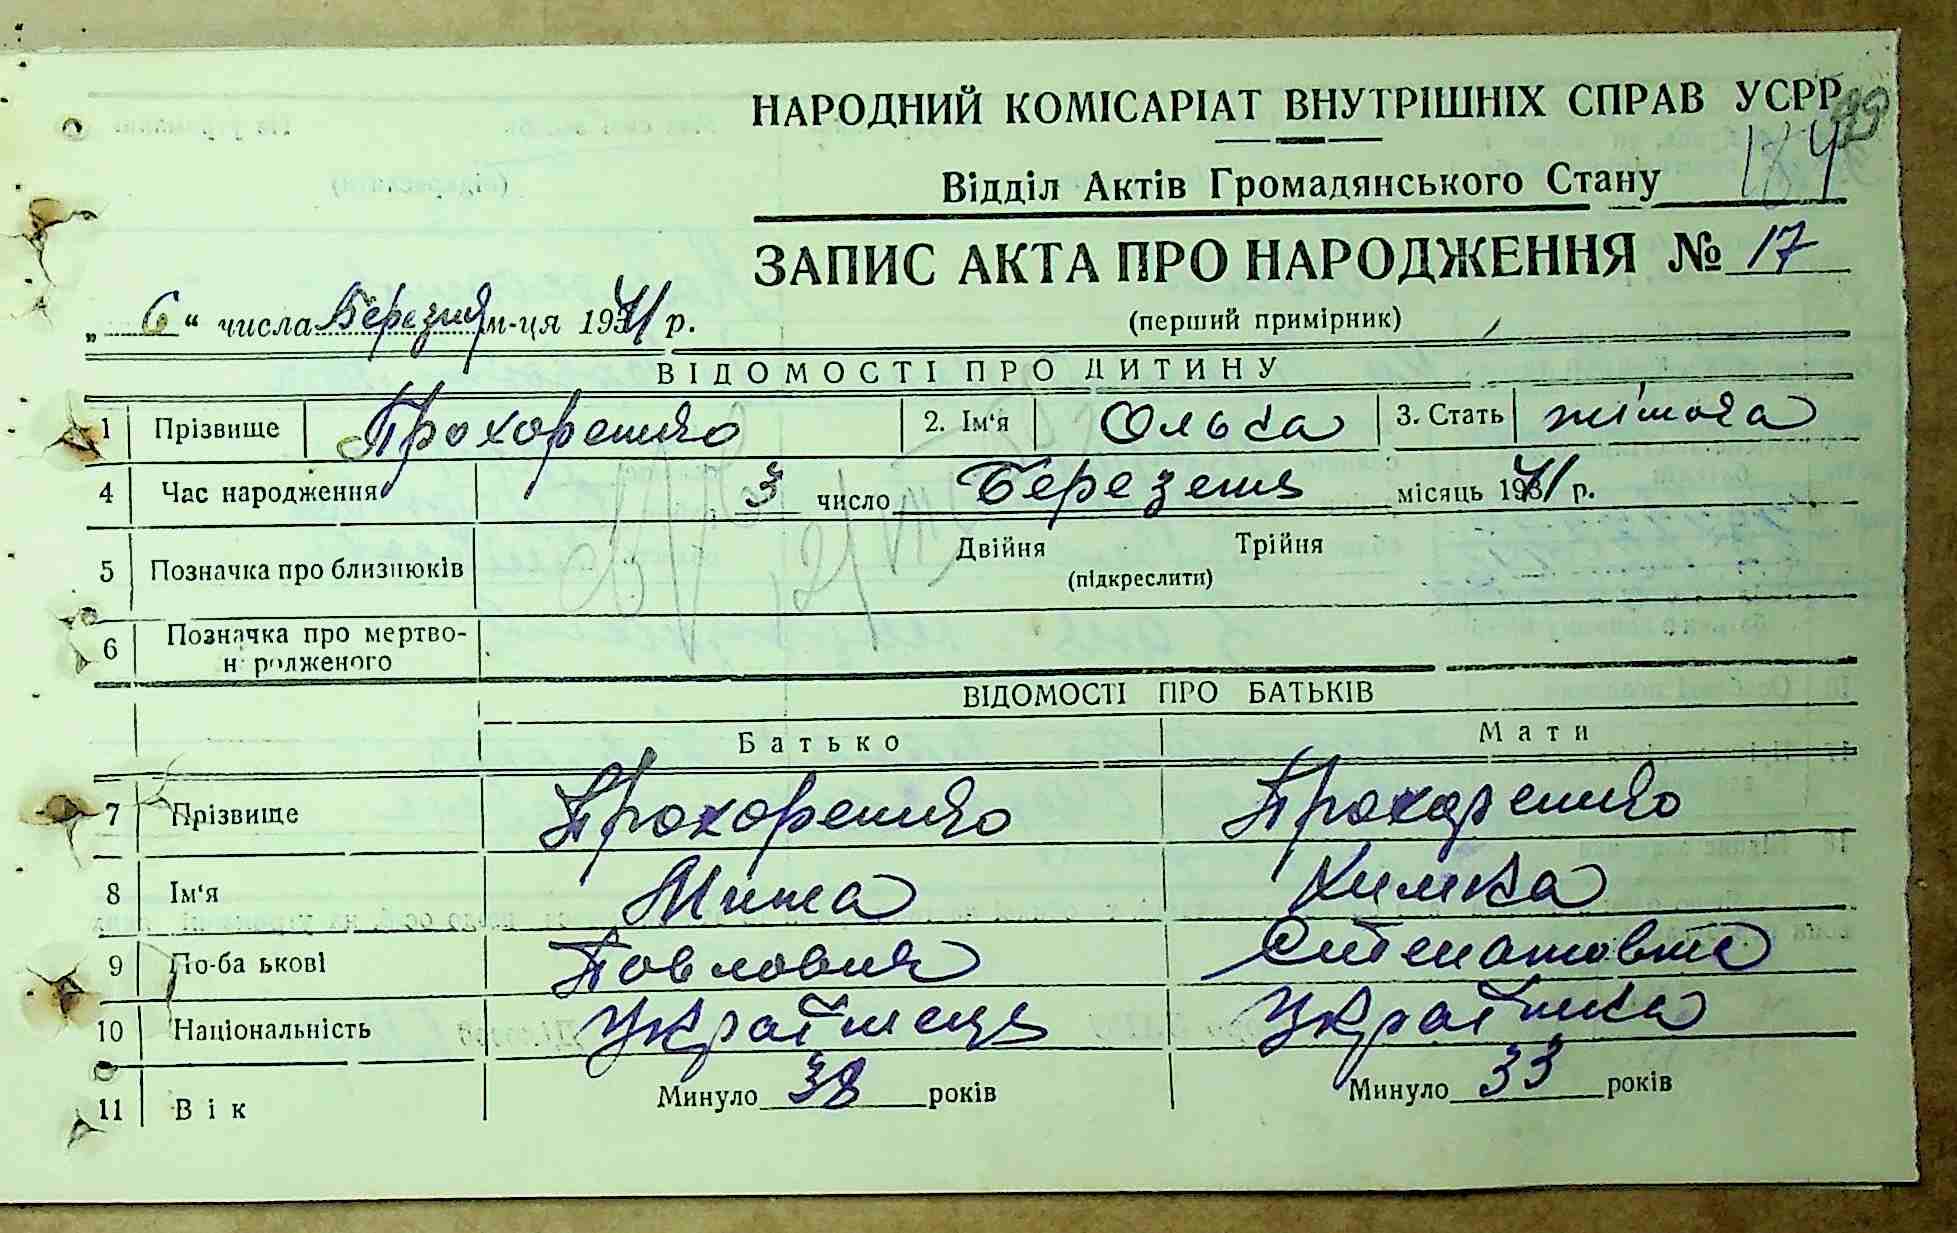 99
НАРОДНИЙ КОМІСАРІАТ ВНУТРІШНІХ СПРАВ УСРР
184
Відділ Актів Громадянського Стану
ЗАПИС АКТА ПРО НАРОДЖЕННЯ № 17
„ 6 “ числа Березня м-ця 1941 р.
(перший примірник)
ВІДОМОСТІ ПРО ДИТИНУ
1 Прізвище Прохоренко 2. Ім'я Ольга 3. Стать жіноча
4 Час народження 3 число Березеня місяць 1941 р.
5 Позначка про близнюків Двійня Трійня
(підкреслити)
6 Позначка про мертво-
н родженого
ВІДОМОСТІ ПРО БАТЬКІВ
Батько Мати
7 Прізвище Прохоренко Прохоренко
8 Ім'я Мина Химка
9 По-ба ькові Повлович Степановне
10 Національність Українець Українка
11 Вік Минуло 38 років Минуло 33 років